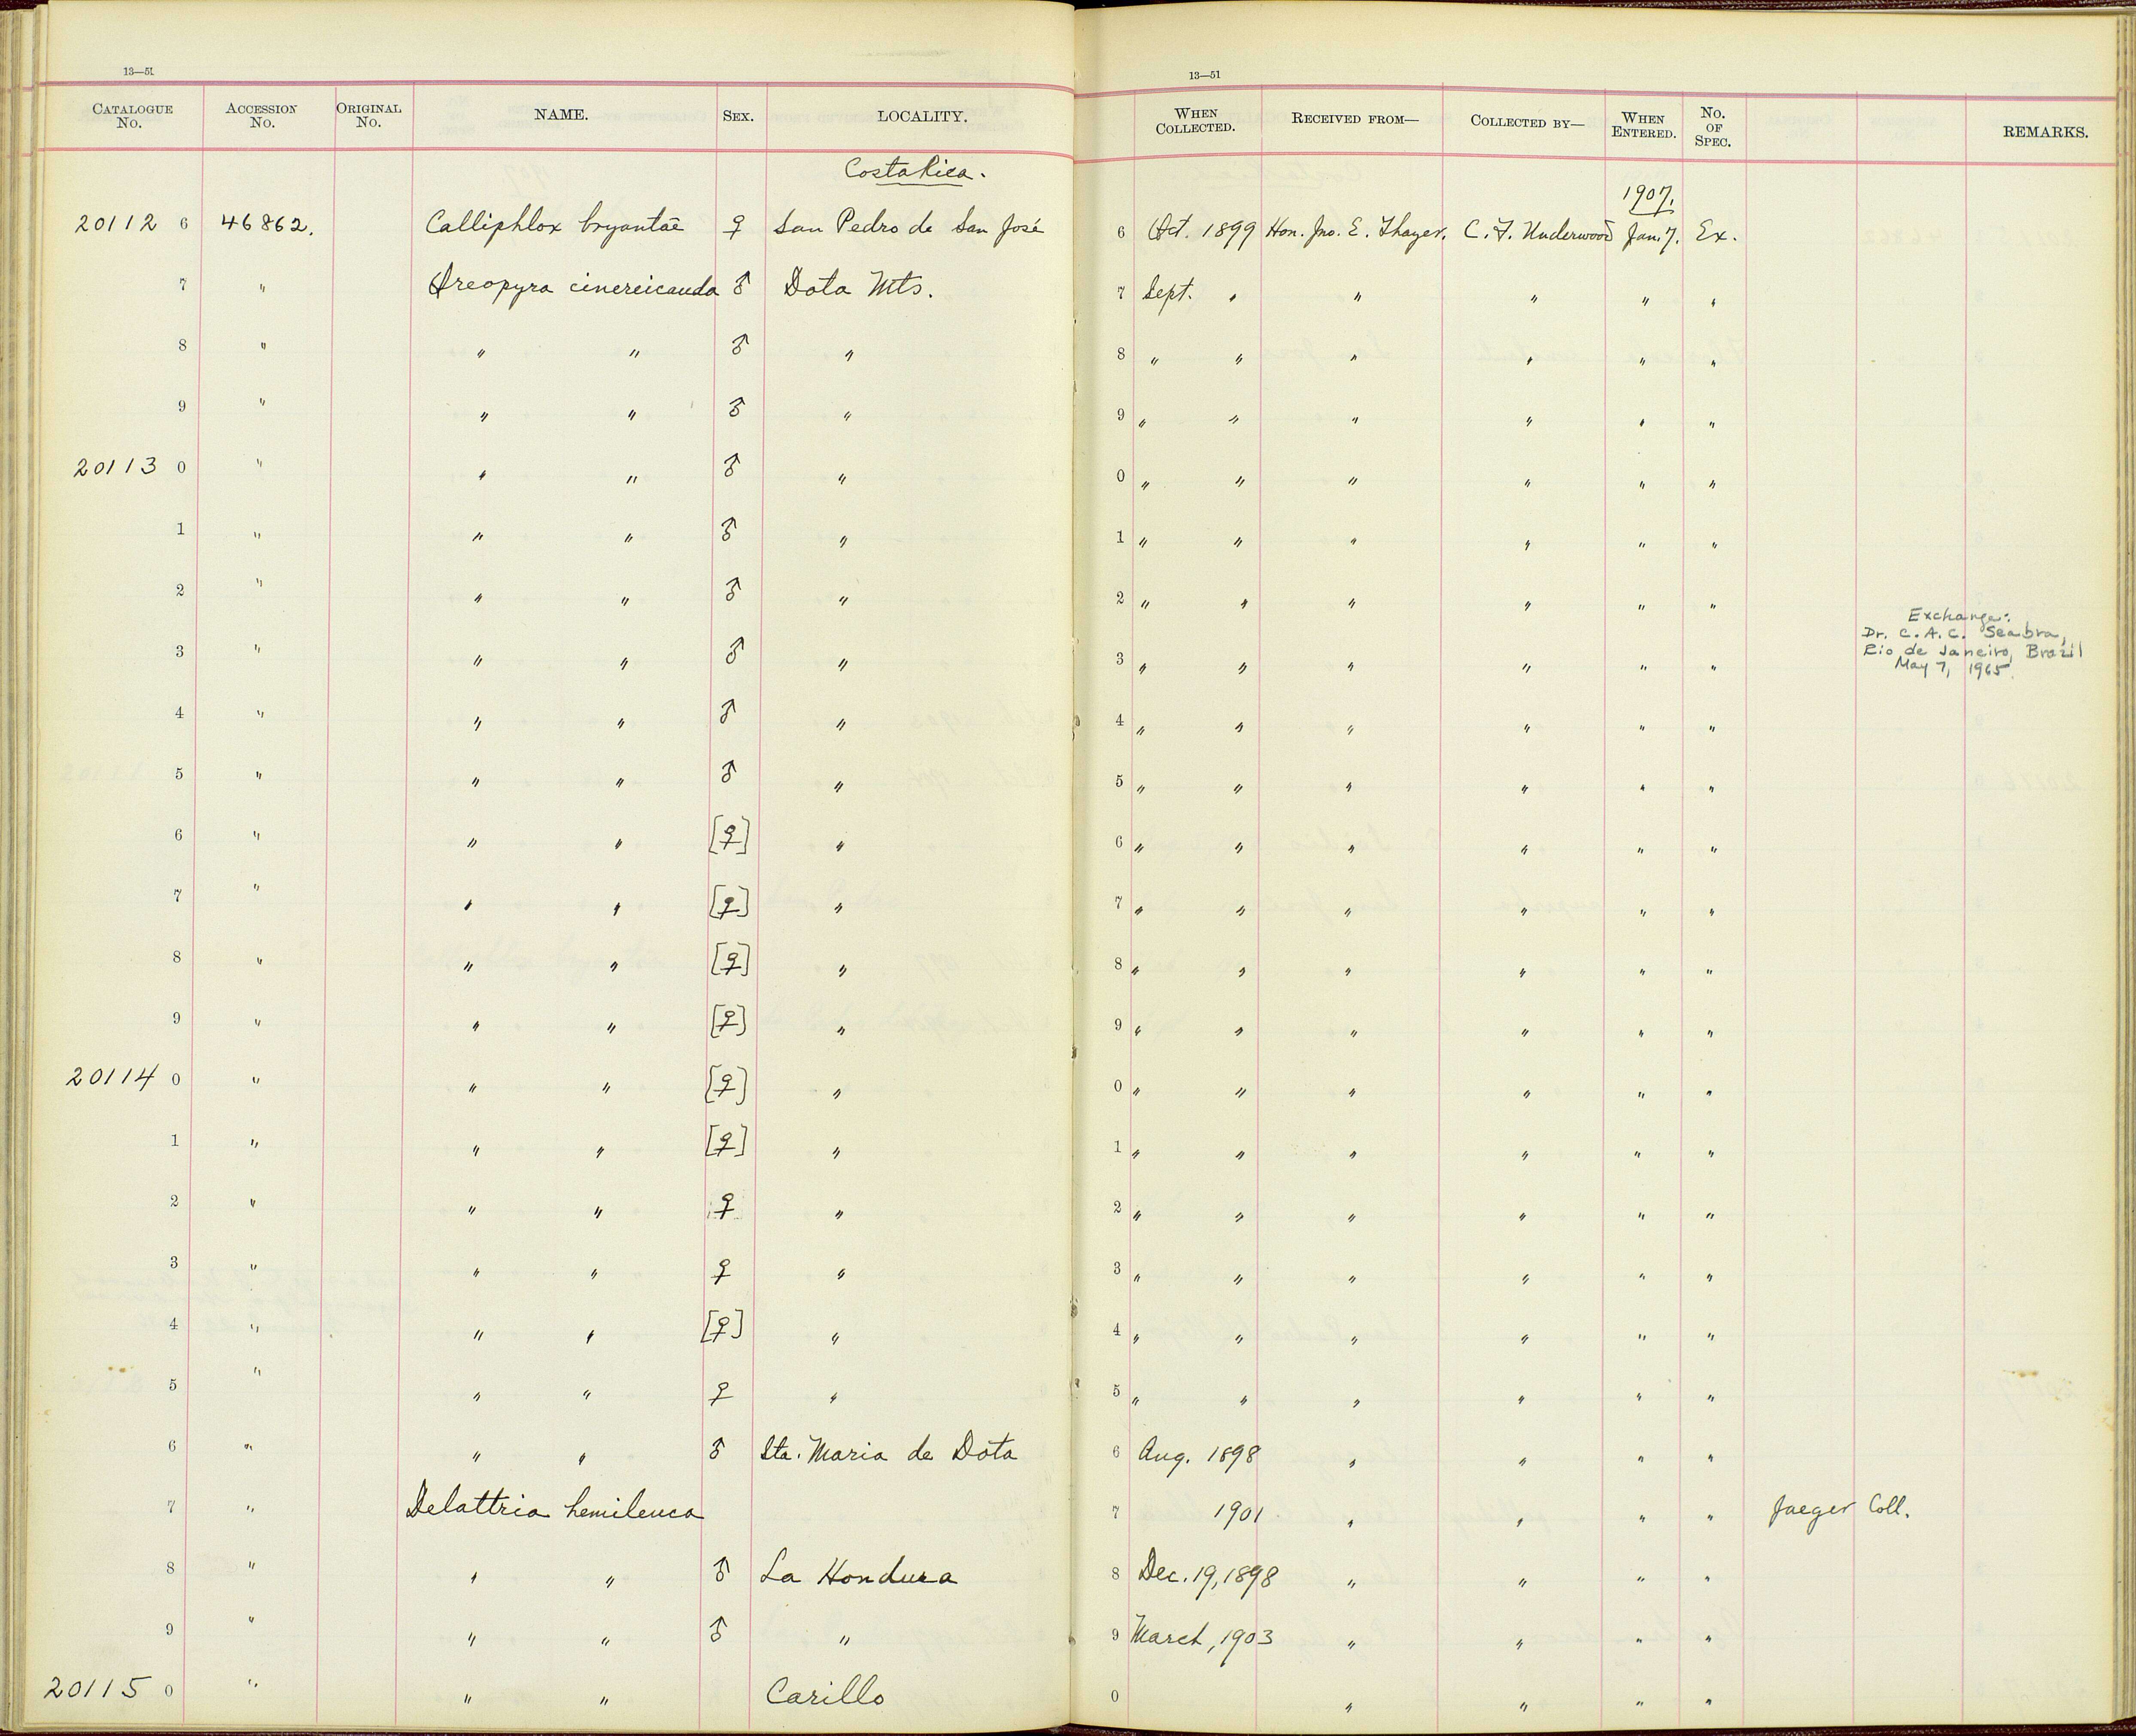 13—51
13—51
CATALOGUE No. ACCESSION No. ORIGINAL No. NAME. SEX. LOCALITY. WHEN COLLECTED. RECEIVED FROM— COLLECTED BY— WHEN ENTERED. No. OF SPEC. REMARKS.
Costa Rica.
1907.
20112 6 46862. Calliphlox bryantæ ♀ San Pedro de San José 6 Oct. 1899 Hon. Jno. E. Thayer. C. F. Underwood Jan. 7. Ex.
7 " Oreopyra cinereicauda ♂ Dota Mts. 7 Sept. " " " " "
8 " " " ♂ " 8 " " " " " "
9 " " " ♂ " 9 " " " " " "
20113 0 " " " ♂ " 0 " " " " " "
1 " " " ♂ " 1 " " " " " "
2 " " " ♂ " 2 " " " " " "
3 " " " ♂ " 3 " " " " " " Exchange:
Dr. C. A. C. Seabra,
Rio de Janeiro, Brazil
May 7, 1965.
4 " " " ♂ " 4 " " " " " "
5 " " " ♂ " 5 " " " " " "
6 " " " [♀] " 6 " " " " " "
7 " " " [♀] " 7 " " " " " "
8 " " " [♀] " 8 " " " " " "
9 " " " [♀] " 9 " " " " " "
20114 0 " " " [♀] " 0 " " " " " "
1 " " " [♀] " 1 " " " " " "
2 " " " ♀ " 2 " " " " " "
3 " " " ♀ " 3 " " " " " "
4 " " " [♀] " 4 " " " " " "
5 " " " ♀ " 5 " " " " " "
6 " " " ♂ Sta. Maria de Dota 6 Aug. 1898 " " " "
7 " Delattria hemileuca 7 1901 " " " " Jaeger Coll.
8 " " " ♂ La Hondura 8 Dec. 19, 1898 " " " "
9 " " " ♂ " 9 March, 1903 " " " "
20115 0 " " " Carillo 0 " " " "